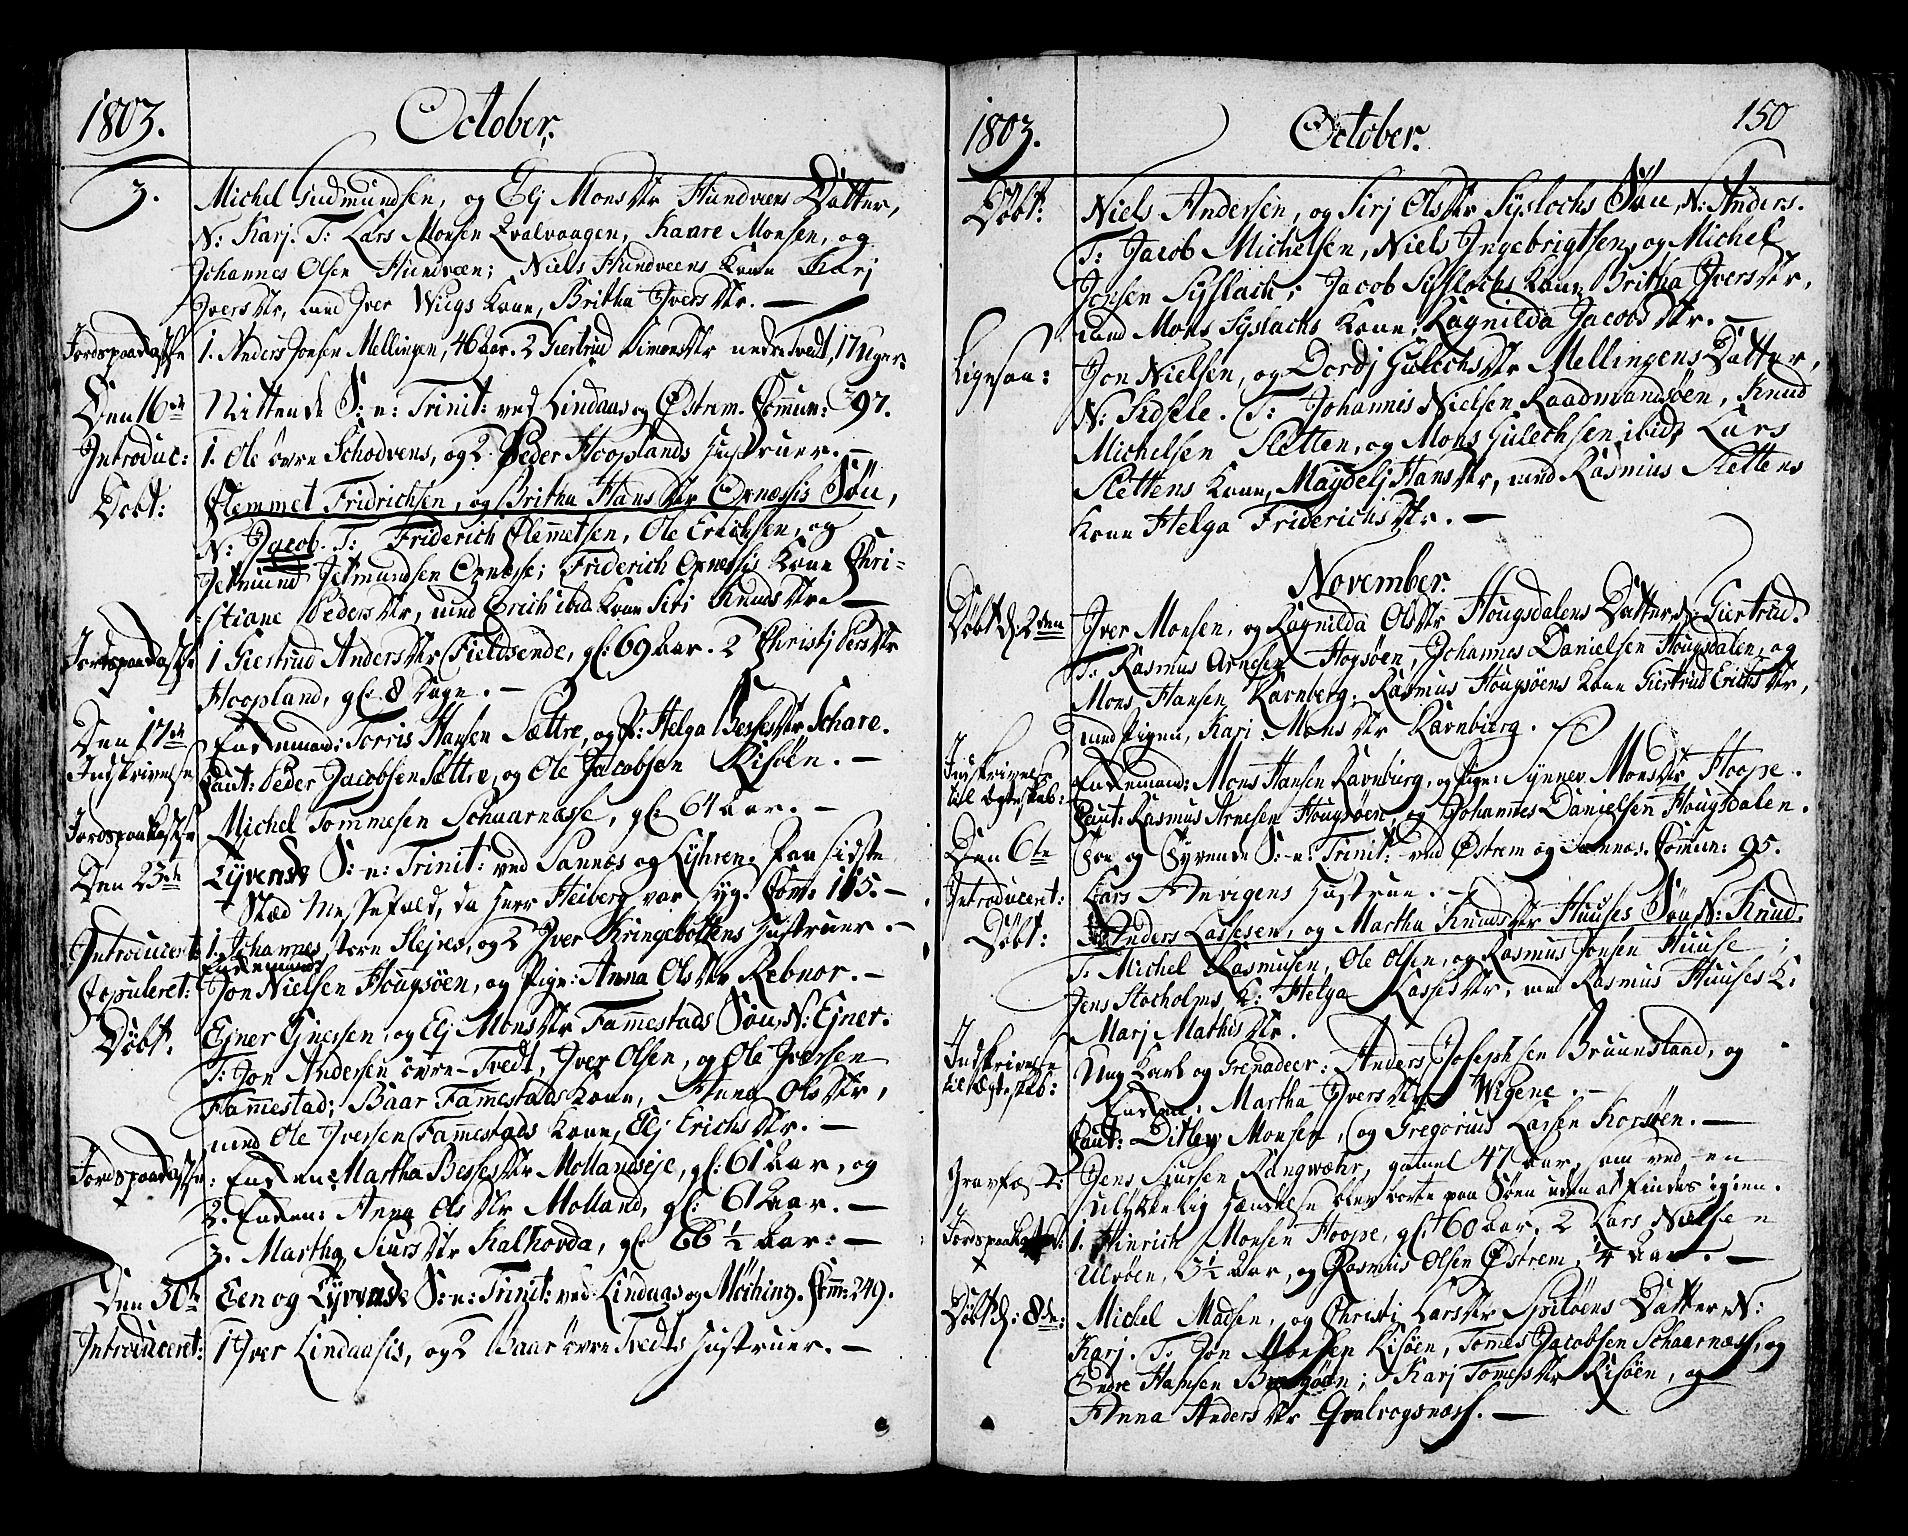 1803. October.
3. Michel Gudmundsen, og Elj Monsdtr Hundveens Datter,
N: Karj. T: Lars Monsen Qvalvaagen, Kaare Monsen, og
Johannes Olsen Hundveen; Niels Hundveens Kone Karj
Iversdtr, med Iver Wiegs Kone, Britha Iversdtr. —
Jordspaadkastse 1. Anders Jonsen Mellingen, 46 aar. 2 Giertrud Simonsdtr nedre Tvedt, 17 Uger.
Den 16de Nittende S: e: Trinit: ved Lindaas og Østrem. Comun: 97.
Introduc: 1. Ole övre Schodvens, og 2 Peder Hooplands Hustruer. —
Döbt: Clemmet Fridrichsen, og Britha Hansdtr Opnæssis Sön,
N: Jacob. T: Friderich Clemetsen, Ole Erichsen, og
Jetmund Jetmundsen Opnesse; Friderich Opnessis Kone Chri-
stiane Pedersdtr, med Erich ibid: Kone Siri Knudsdtr —
Jordspaadkastse 1 Giertrud Andersdtr Fieldsende, gl: 69 aar. 2 Christj Persdtr
Hoopland, gl: 8 Dage. —
Den 17de Enkemand: Torris Hansen Sættre, og P: Helga Bessesdtr Schare.
Indskrivelse Caut: Peder Jacobsen Sættre, og Ole Jacobsen Risöen. —
Jordspaakastse Michel Tommesen Schaarnæsse, gl: 61 aar. —
Den 23de Tyvende S: e: Trinit: ved Sannæs og Lyhren. Paa sidste
Stæd Messefald, da Herr Heiberg var syg. Com: 115. —
Introducert: 1. Johannes store Slejres, og 2 Iver Kringebottens Hustruer. —
Enkemand
Copuleret: Jon Nielsen Hougsöen, og Pige: Anna Olsdtr Rebnor. —
Döbt. Ejner Ejnessen, og Elj Monsdtr Famestads Sön, N: Ejner.
T: Jon Andersen övre-Tvedt, Iver Olsen, og Ole Iversen
Famestad; Baar Famestads Kone, Anna Olsdtr,
med Ole Iversen Famestads Kone, Elj Erichsdtr. —
Jordspaadkastse 1. Enken: Martha Bessesdtr Mollandseje, gl: 61 aar, og
2. Enken: Anna Olsdtr Molland, gl: 61 aar. —
3. Martha Siursdtr Kalhovda, gl: 66 1/2 aar: —
Den 30te Een og Tyvende S: e: Trinit: ved Lindaas og Mÿching. Com: 249.
Introduceret: 1 Iver Lindaasis, og 2 Baar övre Tvedts Hustruer. —
1803. October. 150
Döbt: Niels Andersen, og Sirj Olsdtr Syslachs Sön, N: Anders.
T: Jacob Michelsen, Niels Ingebrigtsen, og Michel
Jensen Syslach; Jacob Syslachs Kone Britha Iversdtr,
med Mons Syslachs Kone, Ragnilda Jacobsdtr. —
Ligesaa: Jon Nielsen, og Dordj Gulechsdtr Mellingens Datter,
N: Sidsele. T: Johannis Nielsen Raadmandsöen, Knud
Michelsen Sletten, og Mons Gulechsen ibid; Lars
Slettens Kone, Magdelj Hansdtr, med Rasmus Slettens
Kone Helga Friderichsdtr. —
November.
Döbt d: 2den Iver Monsen, og Ragnilda Olsdtr Hougsdalens Datter, N: Giertrud.
T: Rasmus Arnesen Hogsöen, Johannes Danielsen Hougsdalen, og
Mons Hansen Ravnberg; Rasmus Hougsöens Kone Giertrud Erichsdtr,
med Pigen, Kari Monsdtr Ravnburg. —
Indskrivelse Enkemand: Mons Hansen Ravnburg, og Pige: Synnev Monsdtr Hoope.
til Ægteskab: Caut: Rasmus Arnesen Hougsöen, og Johannes Danielsen Hougsdalen.
Den 6te Toe og Tyvende S: e: Trinit: ved Østrem og Sannæs. Comun: 95.
Introduceret: Lars Anevigens Hustrue. —
Döbt: Anders Lassesen, og Martha Knudsdtr Huuses Sön, N: Knud.
T: Michel Rasmusen, Ole Olsen, og Rasmus Jonsen Huuse;
Jens Stocholms K: Helga Lassesdtr, med Rasmus Huuses K:
Marj Mathisdtr.
Indskrivelse Ung Karl og Grenadeer: Anders Josephsen Bruunsland, og
til Ægteskab: Enken, Martha Iversdtr Wigene. —
Caut: Ditlev Monsen, og Gregorius Larsen Korsöen. —
Gravfæst: Jens Siursen Rangwæhr, gamel 47 aar, som ved en
ulykkelig Hændelse blev borte paa Söen uden at findes igien.
Jordspaakast: 1. Hinrich Monsen Hoope, gl: 60 aar, 2 Lars Nielsen
Ulvöen, 3 1/2 aar, og Rasmus Olsen Østrem, 1/4 aar. —
Döbt d: 8de: Michel Madsen, og Christi Larsdtr Spitöens Datter N:
Karj. T: Jon Monsen Risöen, Tomes Jacobsen Schaarnæss, og
Endre Hansen; Karj Tomesdtr Risöen, og
Anna Andersdtr Qvalvogsnæss. —